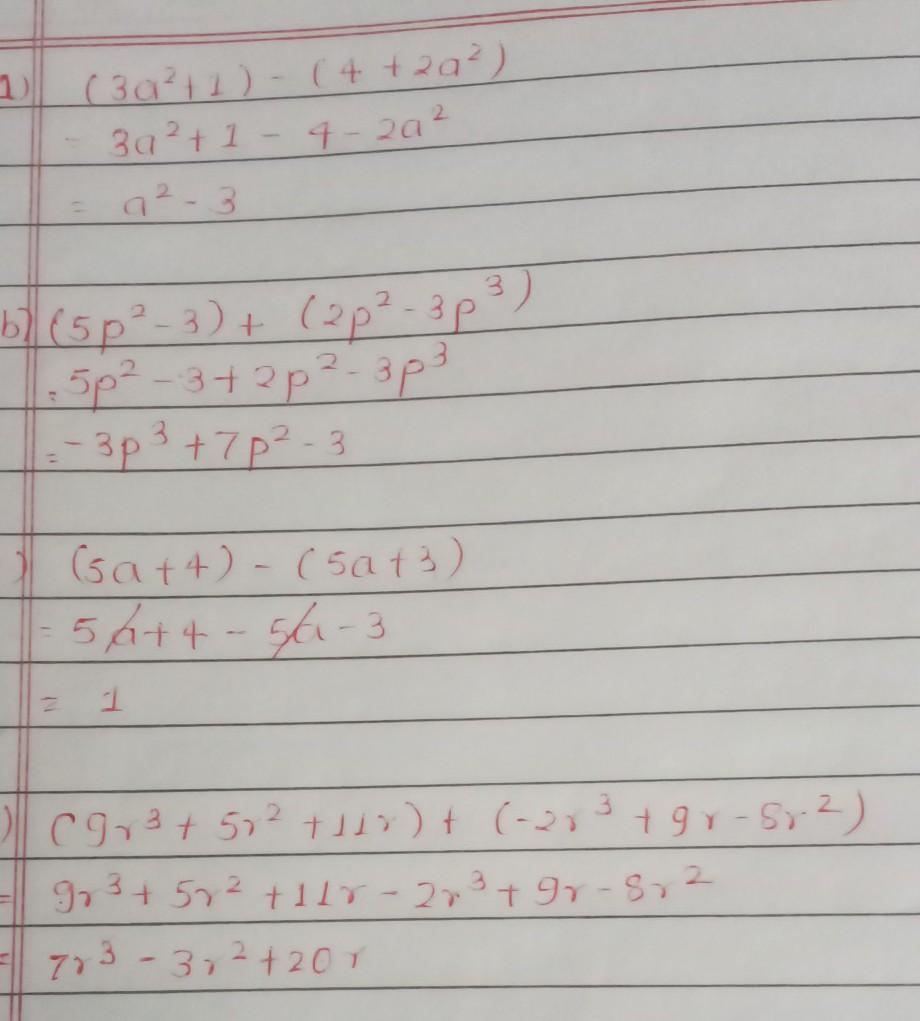 1) (3a²+1) - (4 + 2a²)
- 3a²+1 - 4 - 2a²
= a² - 3
b) (5p² - 3) + (2p² - 3p³)
= 5p² - 3 + 2p² - 3p³
= -3p³ + 7p² - 3
) (5a + 4) - (5a + 3)
= 5a + 4 - 5a - 3
= 1
) (9r³ + 5r² + 11r) + (-2r³ + 9r - 8r²)
= 9r³ + 5r² + 11r - 2r³ + 9r - 8r²
= 7r³ - 3r² + 20r